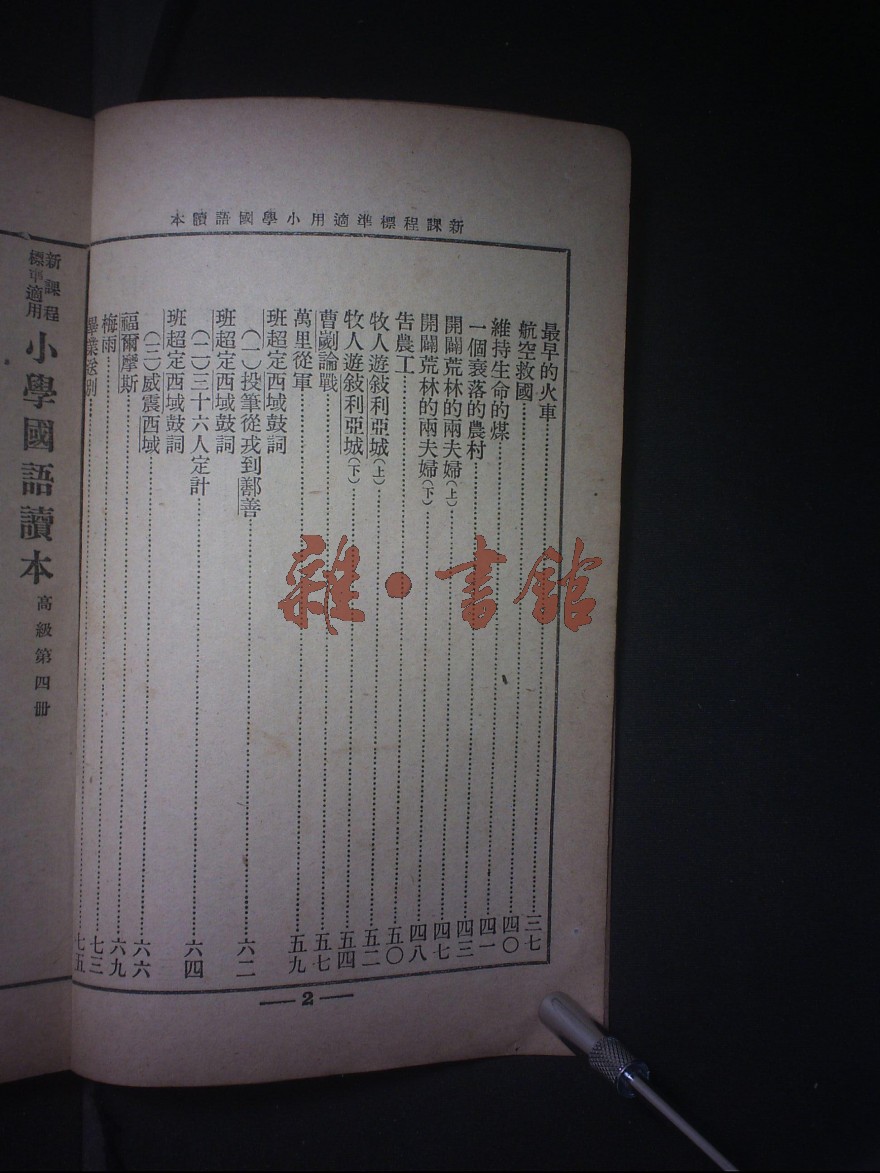 新課程標準適用小學國語讀本
最早的火車……三七
航空救國……四〇
維持生命的煤……四一
一個衰落的農村……四三
開闢荒林的兩夫婦(上)……四七
開闢荒林的兩夫婦(下)……四八
告農工……五〇
牧人遊敍利亞城(上)……五二
牧人遊敍利亞城(下)……五四
曹劌論戰……五七
萬里從軍……五九
班超定西域鼓詞
(一)投筆從戎到鄯善……六二
班超定西域鼓詞
(二)三十六人定計……六四
班超定西域鼓詞
(三)威震西域……六六
福爾摩斯……六九
梅雨……七三
畢業送別……七五
2
新課程標準適用
小學國語讀本
高級第四冊
雜·書館